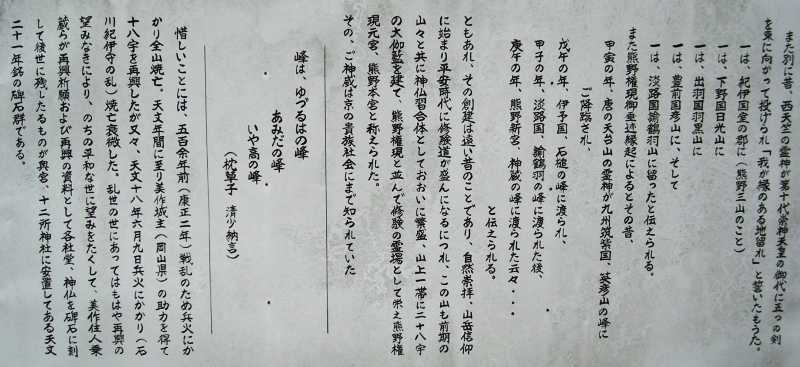 また別に昔、西天竺の霊神が第十代崇神天皇の御代に五つの剣
を東に向かって投げられ「我が縁のある地留れ」と誓いたもうた。
一は、紀伊国室の郡に（熊野三山のこと）
一は、下野国日光山に
一は、出羽国羽黒山に
一は、豊前国彦山に、そして
一は、淡路国諭鶴羽山に留ったと伝えられる。
また熊野権現御垂迹縁起によるとその昔、
甲寅の年、唐の天台山の霊神が九州筑紫国、英彦山の峰に
ご降臨され、
戊午の年、伊予国、石槌の峰に渡られ、
甲子の年、淡路国、諭鶴羽の峰に渡られた後、
庚午の年、熊野新宮、神蔵の峰に渡られた云々・・・
と伝えられる。
ともあれ、その創建は遠い昔のことであり、自然崇拝、山岳信仰
に始まり平安時代に修験道が盛んになるにつれ、この山も前期の
山々と共に神仏習合体としておおいに繁盛、山上一帯に二十八宇
の大伽藍を建て、熊野権現と並んで修験の霊場として栄え熊野権
現元宮、熊野本宮と称えられた。
その、ご神威は京の貴族社会にまで知られていた
峰は、ゆづるはの峰
あみだの峰
いや高の峰
（枕草子　清少納言）
惜しいことには、五百余年前（康正二年）戦乱のため兵火にか
かり全山焼亡、天文年間に至り美作城主（岡山県）の助力を得て
十八宇を再興したが又々、天文十八年六月九日兵火にかかり（石
川紀伊守の乱）焼亡衰微した。乱世の世にあってはもはや再興の
望みなきにより、のちの平和な世に望みをたくして、美作住人乗
蔵らが再興祈願および再興の資料として各社堂、神仏を碑石に刻
して後世に残したるものが奥宮、十二所神社に安置してある天文
二十一年銘の碑石群である。